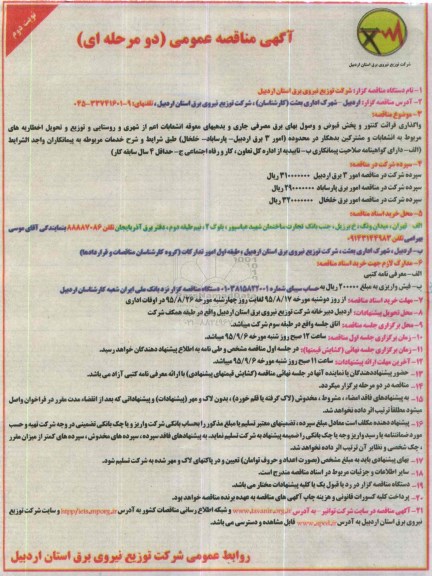 نوبت دوم
آگهی مناقصه عمومی (دو مرحله ای)
شرکت توزیع نیروی برق استان اردبیل
۱- نام دستگاه مناقصه گزار: شرکت توزیع نیروی برق استان اردبیل
۲- آدرس مناقصه گزار: اردبیل - شهرک اداری بعثت (کارشناسان)، شرکت توزیع نیروی برق استان اردبیل، تلفنهای: ۹-۳۳۷۴۱۶۰۱-۰۴۵
۳- موضوع مناقصه:
واگذاری قرائت کنتور و پخش قبوض و وصول بهای برق مصرفی جاری و بدهیهای معوقه انشعابات اعم از شهری و روستایی و توزیع و تحویل اخطاریه های
مربوط به انشعابات و مشترکین بدهکار در محدوده (امور ۳ برق اردبیل- پارساباد- خلخال) طبق شرایط و شرح خدمات مربوطه به پیمانکاران واجد الشرایط
(الف- دارای گواهینامه صلاحیت پیمانکاری ب- تاییدیه از اداره کل تعاون، کار و رفاه اجتماعی ج- حداقل ۴ سال سابقه کار)
۴- سپرده شرکت در مناقصه:
سپرده شرکت در مناقصه امور ۳ برق اردبیل ۳۱۰۰۰۰۰۰۰ ریال
سپرده شرکت در مناقصه امور برق پارساباد ۲۹۰۰۰۰۰۰۰ ریال
سپرده شرکت در مناقصه امور برق خلخال ۳۲۰۰۰۰۰۰۰ ریال
۵- محل خرید اسناد مناقصه:
الف- تهران، میدان ونک، خ برزیل، جنب بانک تجارت ساختمان شهید عباسپور، بلوک ۲، نیم طبقه دوم، دفتر برق آذربایجان تلفن ۸۸۸۸۷۰۸۶ بنمایندگی آقای موسی
بیرامی تلفن ۰۹۱۲۳۱۴۴۹۸۳
ب- اردبیل، شهرک اداری بعثت، شرکت توزیع نیروی برق استان اردبیل، طبقه اول امور تدارکات (گروه کارشناسان مناقصات و قراردادها)
۶- مدارک لازم جهت خرید اسناد مناقصه:
الف- معرفی نامه کتبی
ب- فیش واریزی به مبلغ ۲۰۰۰۰۰ ریال به حساب سیبای شماره ۰۱۰۳۸۱۵۸۲۲۰۰۱ دستگاه مناقصه گزار نزد بانک ملی ایران شعبه کارشناسان اردبیل
۷- مهلت خرید اسناد مناقصه: از روز دوشنبه مورخه ۹۵/۸/۱۷ لغایت روز چهارشنبه مورخه ۹۵/۸/۲۶ در اوقات اداری
۸- محل تحویل پیشنهادات: اردبیل دبیرخانه شرکت توزیع نیروی برق استان اردبیل واقع در طبقه همکف شرکت
۹- محل برگزاری جلسه مناقصه: اتاق جلسه واقع در طبقه سوم شرکت میباشد.
۱۰- زمان برگزاری جلسه اول مناقصه: ساعت ۱۲ صبح روز شنبه مورخه ۹۵/۹/۶ میباشد.
۱۱- زمان برگزاری جلسه نهائی (گشایش قیمتها): در جلسه اول مناقصه مشخص و طی نامه به اطلاع پیشنهاد دهندگان خواهد رسید.
۱۲- آخرین مهلت ارائه پیشنهادات: ساعت ۱۱ صبح روز شنبه مورخه ۹۵/۹/۶ میباشد.
۱۳- حضور پیشنهاددهندگان یا نماینده آنها در جلسه نهائی مناقصه (گشایش قیمتهای پیشنهادی) با ارائه معرفی نامه کتبی آزاد می باشد.
۱۴- مناقصه در دو مرحله برگزار میگردد.
۱۵- به پیشنهادهای فاقد امضاء، مشروط، مخدوش (لاک گرفته یا قلم خورده)، بدون لاک و مهر (پیشنهادات) و پیشنهاداتی که بعد از انقضاء مدت مقرر در فراخوان واصل
میشود مطلقاً ترتیب اثر داده نخواهد شد.
۱۶- پیشنهاد دهنده مکلف است معادل مبلغ سپرده، تضمینهای معتبر تسلیم یا مبلغ مذکور را بحساب بانکی شرکت واریز و یا چک بانکی تضمینی در وجه شرکت تهیه و حسب
مورد ضمانتنامه یا رسید واریز وجه یا چک بانکی را ضمیمه پیشنهاد به شرکت تسلیم نماید، به پیشنهادهای فاقد سپرده، سپرده های مخدوش، سپرده های کمتر از میزان مقرر
، چک شخصی و نظایر آن ترتیب اثر داده نخواهد شد.
۱۷- بهای پیشنهادی باید به مبلغ مشخص (بصورت اعداد و حروف توامان) تعیین و در پاکتهای لاک و مهر شده به شرکت تسلیم شود.
۱۸- سایر اطلاعات و جزئیات مربوط در اسناد مناقصه مندرج است.
۱۹- دستگاه مناقصه گزار در رد یا قبول یک یا کلیه پیشنهادات مختار می باشد.
۲۰- پرداخت کلیه کسورات قانونی و هزینه چاپ آگهی های مناقصه به عهده برنده مناقصه خواهد بود.
۲۱- آگهی مناقصه در سایت شرکت توانیر - به آدرس www.tavanir.org.ir و شبکه اطلاع رسانی مناقصات کشور به آدرس http://iets.mporg.ir و سایت شرکت توزیع
نیروی برق استان اردبیل به آدرس www.aped.ir قابل مشاهده و دسترسی می باشد.
روابط عمومی شرکت توزیع نیروی برق استان اردبیل